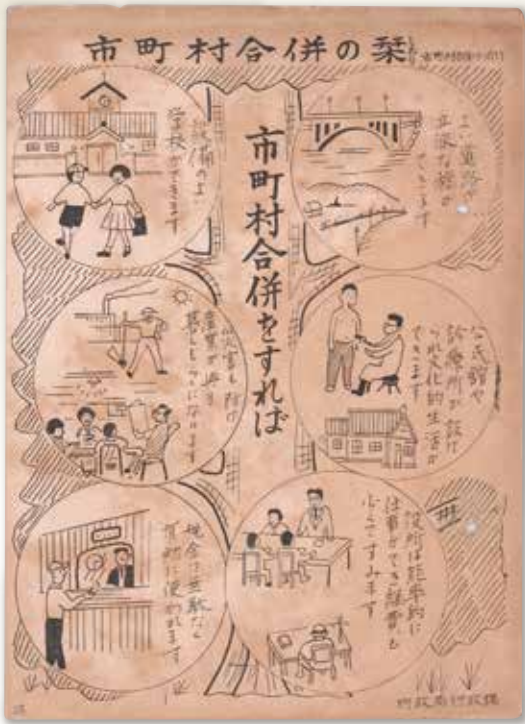 市町村合併の栞
市町村合併をすれば
よい道路や
立派な橋が
できます
設備のよい
学校ができます
公民館や
診療所が設け
られ文化的生活が
できます
災害も防げ
産業が興り
暮しもらくになります
役所は能率的に
仕事ができ経費も
少くてすみます
税金は無駄なく
有効に使われます
行政局行政課